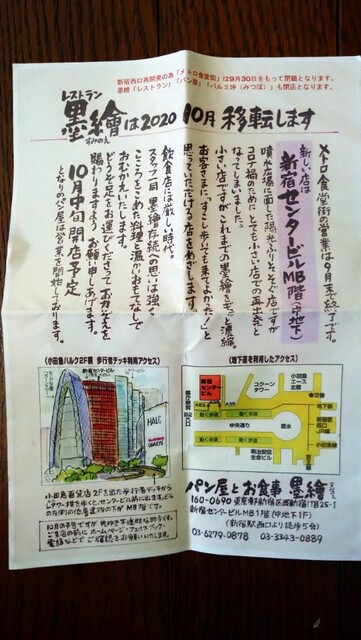 新宿西口再開発の為「メトロ食堂街」は9月30日をもって閉鎖となります。
墨繪「レストラン」「パン屋」「バル3坪（みつぼ）」も閉店となります。
レストラン
墨繪は2020 10月 移転します
すみのえ
メトロ食堂街の営業は9月末で終了です。
新しい店は
新宿センタービルMB階（中地下）
噴水広場に面した陽光ふりそそぐ店ですが
コロナ禍のためにとても小さい店での再出発と
なってしまいました。
小さい店ですがこれまでの墨繪をぎゅっと濃縮。
お客さまに「すこし歩いても来てよかった！」と
思っていただける店をめざします。
飲食店には厳しい時代。
スタッフ一同 墨繪存続への思いは強く
こころをこめた料理と温かいおもてなしで
おむかえいたします。
どうぞ足をお運びくださってお力ぞえを
賜わりますよう お願い申しあげます。
10月中旬 開店予定
となりのパン屋は営業を開始しております。
（小田急ハルク2F横 歩行者デッキ利用アクセス）
新宿センタービル
HALC
小田急百貨店2Fを出た歩行者デッキから
（地下道を利用したアクセス）
新宿センタービル
コクーンタワー
小田急エース北館
交番
地下鉄
動く歩道
動く歩道
中央通り
噴水
新宿駅西口
JR
小田急線
明治安田生命ビル
京王線
パン屋とお食事 墨繪
160-0690 東京都新宿区西新宿1丁目25-1
新宿センタービルMB1階（中地下1F）
（新宿駅西口より徒歩5分）
03-6279-0878 03-3343-0889